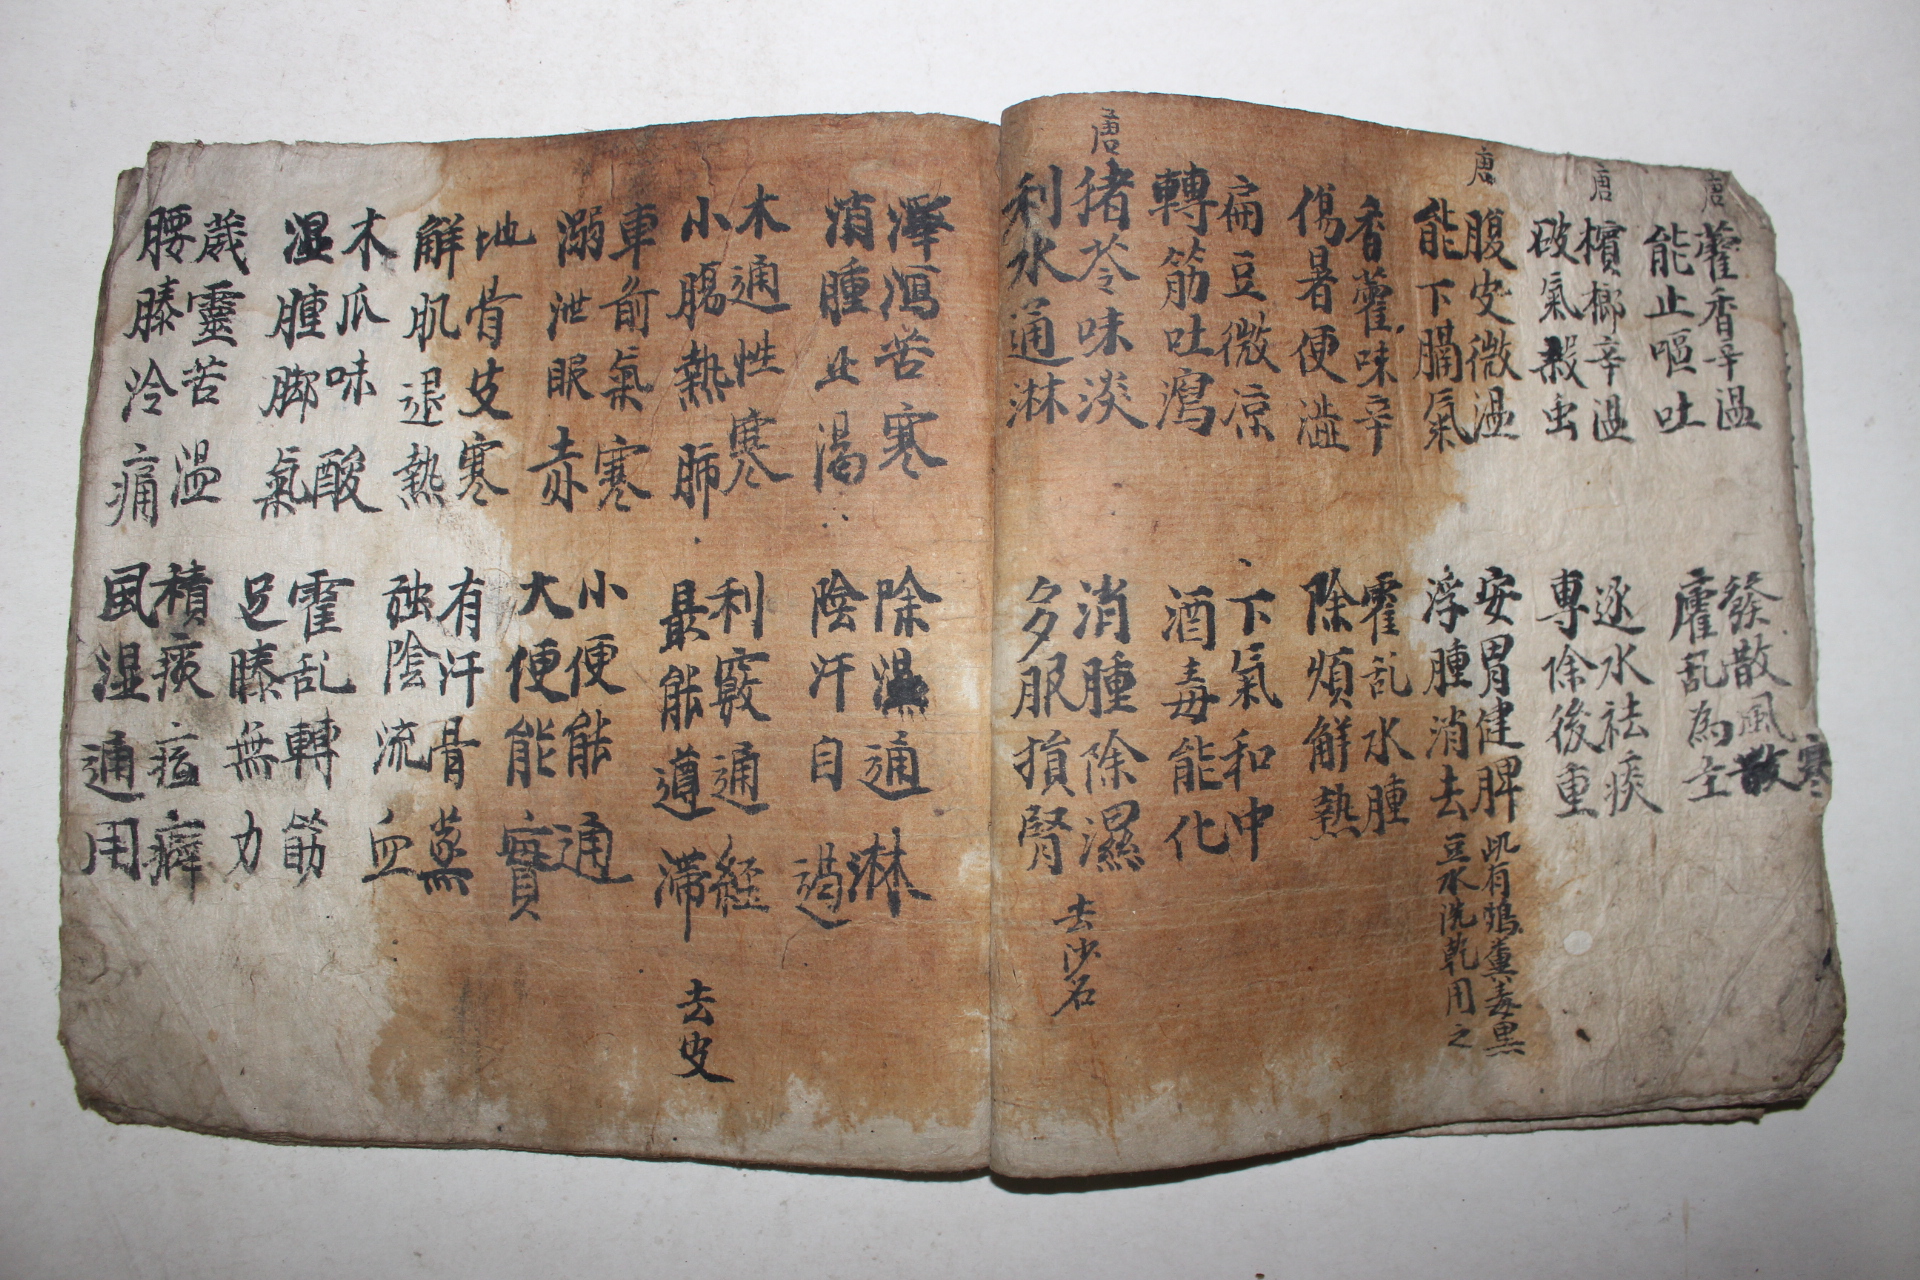 唐
藿香辛温
能止嘔吐
發散風散寒
癨乱為主
唐
檳榔辛温
破氣殺虫
逐水祛痰
專除後重
唐
腹皮微温
能下膈氣
安胃健脾
浮腫消去
此有鴆糞毒黑
豆水洗乾用之
香藿味辛
傷暑便澁
霍乱水腫
除煩解熱
扁豆微凉
轉筋吐瀉
下氣和冲
酒毒能化
唐
猪苓味淡
利水通淋
消腫除濕
多服損腎
去沙石
澤瀉苦寒
消腫止渴
除濕通淋
陰汗自遏
木通性寒
小膓熱肺
利竅通経
最能遵滯
去皮
車前氣寒
溺泄眼赤
小便能通
大便能實
地骨皮寒
解肌退熱
有汗骨蒸
強陰流血
木瓜味酸
湿腫脚氣
霍乱轉筋
足膝無力
葳靈苦温
腰膝冷痛
積痰痃癖
風湿通用